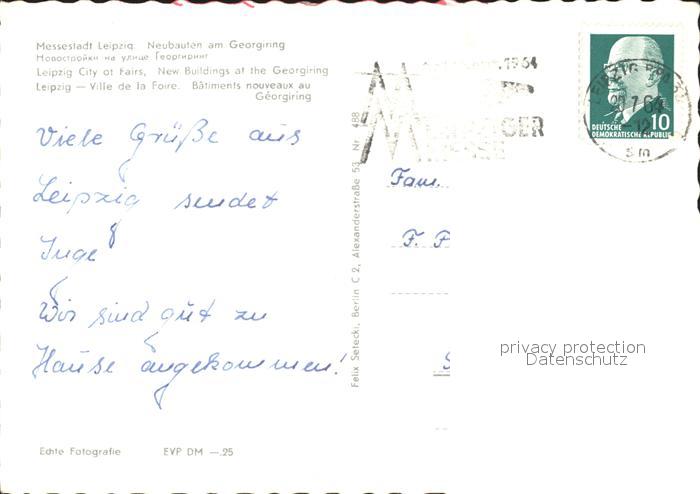 Messestadt Leipzig: Neubauten am Georgiring
Новостройки на улице Георгиринг
Leipzig City of Fairs, New Buildings at the Georgiring
Leipzig — Ville de la Foire. Bâtiments nouveaux au
Géorgiring
Viele Grüße aus
Leipzig sendet
Inge
Wir sind gut zu
Hause angekommen!
Echte Fotografie EVP DM —.25
Felix Setecki, Berlin C 2, Alexanderstraße 53 Nr. 488
1964
MESSE
10
DEUTSCHE
DEMOKRATISCHE REPUBLIK
LEIPZIG
Fam.
F. P
S
privacy protection
Datenschutz